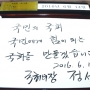 국민의 국회
국민에게 힘이 되는
국회를 만들겠습니다
2016. 6.
국회의장 정세